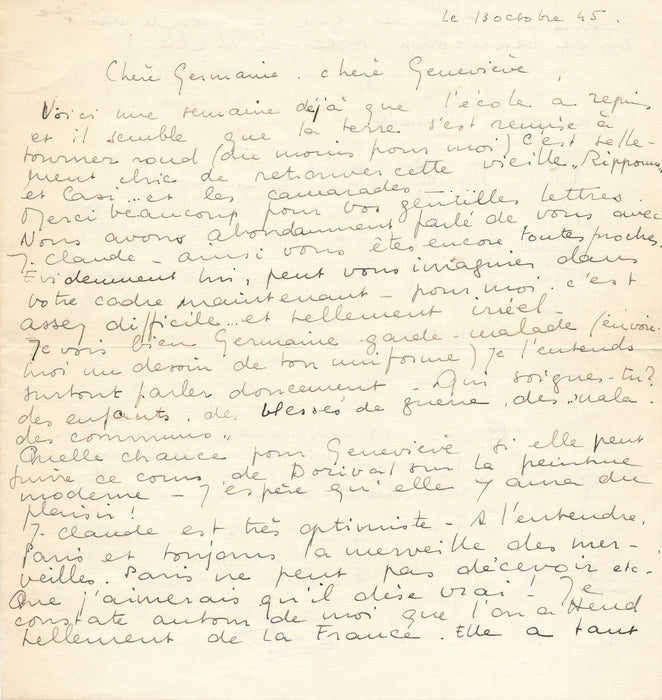 le 13 octobre 45.
Chère Germaine. chère Geneviève,
Voici une semaine déjà que l'école a repris
et il semble que la terre s'est remise à
tourner rond (du moins pour moi) C'est telle-
ment chic de retrouver cette vieille "Rippoune"
et Casi... et les camarades.
Merci beaucoup pour vos gentilles lettres.
Nous avons abondamment parlé de vous avec
J. Claude - ainsi vous êtes encore toutes proches.
Evidemment lui, peut vous imaginer dans
votre cadre maintenant - pour moi. c'est
assez difficile... et tellement irréel -
Je vois bien Germaine garde-malade (envoie-
moi un dessin de ton uniforme) Je l'entends
surtout parler doucement - Qui soignes-tu?
des enfants, des blessés de guerre, des "mala-
des communs"
Quelle chance pour Geneviève si elle peut
suivre ce cours de Dorival sur la peinture
moderne - J'espère qu'elle y aura du
plaisir!
J. Claude est très optimiste - A l'entendre,
Paris et toujours la merveille des mer-
veilles. Paris ne peut pas décevoir etc-
Que j'aimerais qu'il dise vrai! Je
constate autour de moi que l'on attend
tellement de la France. Elle a tant